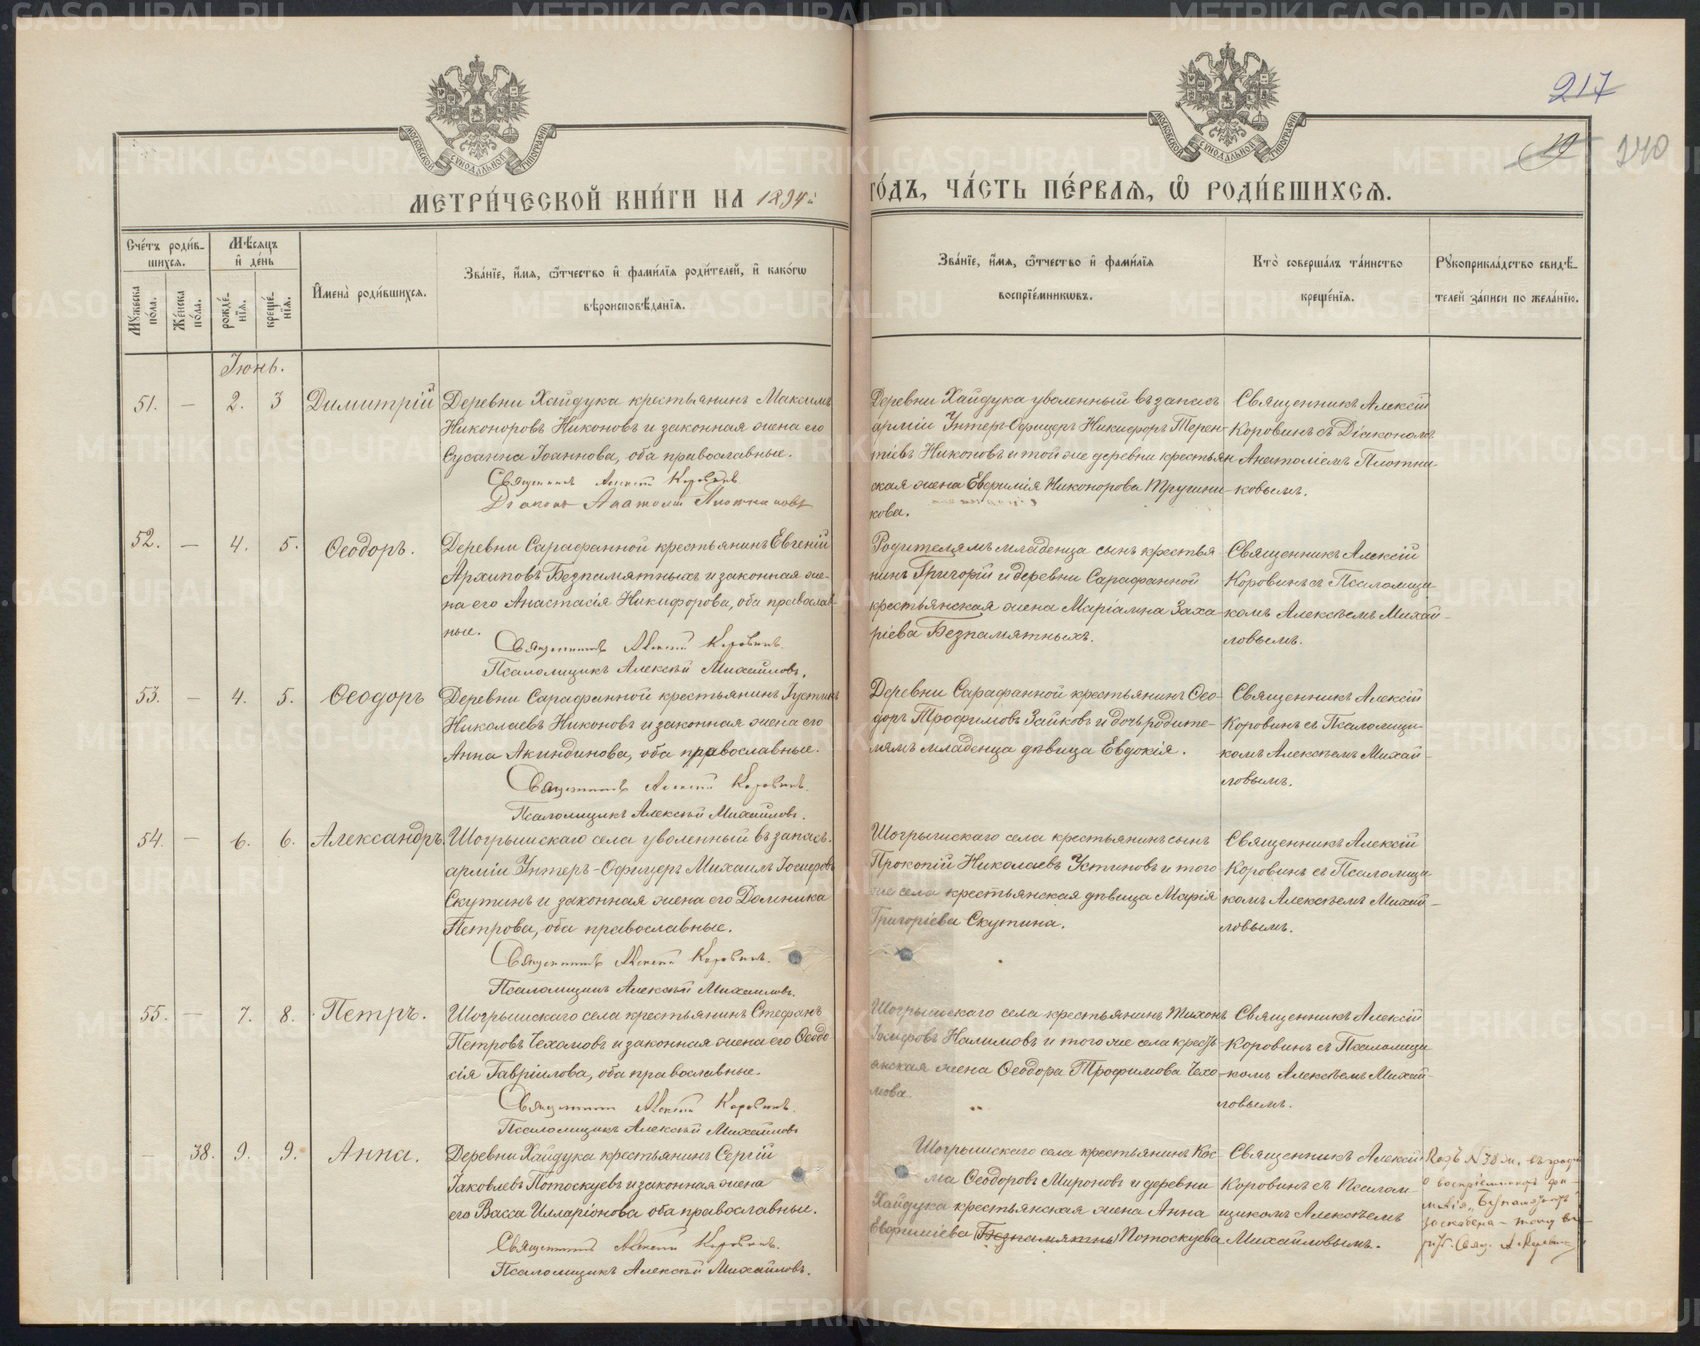 217
240
МОСКОВСКОЙ СУНОДАЛЬНОЙ ТИПОГРАФІИ
МОСКОВСКОЙ СУНОДАЛЬНОЙ ТИПОГРАФІИ
МЕТРИ́ЧЕСКОЙ КНИ́ГИ НА 1894й
ГО́ДЪ, ЧА́СТЬ ПЕ́РВАЯ, Ѡ҆ РОДИ́ВШИХСЯ.
Сче́тъ роди́в-
шихся.
Мѣ́сяцъ
и҆ де́нь
Му́жеска
по́ла.
Же́нска
по́ла.
рожде́-
нїя.
креще́-
нїя.
И҆мена̀ роди́вшихся.
Зва́нїе, и҆́мя, ѻ҆́тчество и҆ фами́лїя роди́телей, и҆ како́гѡ
вѣроисповѣ́данїя.
Зва́нїе, и҆́мя, ѻ҆́тчество и҆ фами́лїя
воспрїе́мникѡвъ.
Кто̀ соверша́лъ та́инство
креще́нїя.
Рꙋкоприкла́дство свидѣ́-
телей за́писи по жела́нїю.
Іюнь.
51. — 2. 3 Димитрій
Деревни Хайдука крестьянинъ Максимъ
Никоноровъ Никоновъ и законная жена его
Сусанна Іоаннова, оба православные.
Священникъ Алексій Коровинъ
Діаконъ Анатолій Плотниковъ
Деревни Хайдука уволенный въ запасъ
арміи Унтеръ-Офицеръ Никифоръ Терен-
тіевъ Никоновъ и той же деревни крестьян
ская жена Евфимія Никонорова Пругини-
кова.
Священникъ Алексій
Коровинъ съ Діакономъ
Анатоліемъ Плотни-
ковымъ.
52. — 4. 5. Ѳеодоръ.
Деревни Сарафанной крестьянинъ Евгеній
Архиповъ Безпамятныхъ и законная же-
на его Анастасія Никифорова, оба православ-
ные.
Священникъ Алексій Коровинъ.
Псаломщикъ Алексѣй Михайловъ.
Родителямъ младенца сынъ крестья
нинъ Григорій и деревни Сарафанной
крестьянская жена Маріамна Заха-
ріева Безпамятныхъ.
Священникъ Алексій
Коровинъ съ Псаломщи-
комъ Алексѣемъ Михай-
ловымъ.
53. — 4. 5. Ѳеодоръ
Деревни Сарафанной крестьянинъ Іустинъ
Николаевъ Никоновъ и законная жена его
Анна Акиндинова, оба православные.
Священникъ Алексій Коровинъ.
Псаломщикъ Алексѣй Михайловъ.
Деревни Сарафанной крестьянинъ Ѳео-
доръ Трофимовъ Зайковъ и дочь родите-
лямъ младенца дѣвица Евдокія.
Священникъ Алексій
Коровинъ съ Псаломщи-
комъ Алексѣемъ Михай-
ловымъ.
54. — 6. 6. Александръ.
Шогрышскаго села уволенный въ запасъ
арміи Унтеръ-Офицеръ Михаилъ Іосифовъ
Скутинъ и законная жена его Домника
Петрова, оба православные.
Священникъ Алексій Коровинъ.
Псаломщикъ Алексѣй Михайловъ.
Шогрышскаго села крестьянинъ сынъ
Прокопій Николаевъ Устиновъ и того
же села крестьянская дѣвица Марія
Григоріева Скутина.
Священникъ Алексій
Коровинъ съ Псаломщи
комъ Алексѣемъ Михай-
ловымъ.
55. — 7. 8. Петръ.
Шогрышскаго села крестьянинъ Стефанъ
Петровъ Чехомовъ и законная жена его Ѳеодо-
сія Гавріилова, оба православные.
Священникъ Алексій Коровинъ.
Псаломщикъ Алексѣй Михайловъ
Шогрышскаго села крестьянинъ Тихонъ
Іосифовъ Налимовъ и того же села кресть-
янская жена Ѳеодора Трофимова Чехо-
мова.
Священникъ Алексій
Коровинъ съ Псаломщи
комъ Алексѣемъ Михай-
ловымъ.
— 38. 9. 9. Анна.
Деревни Хайдука крестьянинъ Сергій
Іаковлевъ Потоскуевъ и законная жена
его Васса Илларіонова оба православные.
Священникъ Алексій Коровинъ.
Псаломщикъ Алексѣй Михайловъ.
Шогрышскаго села крестьянинъ Кос-
ма Ѳеодоровъ Мироновъ и деревни
Хайдука крестьянская жена Анна
Евфиміева (Безпамятныхъ) Потоскуева
Священникъ Алексій
Коровинъ съ Псалом-
щикомъ Алексѣемъ
Михайловымъ.
Подъ № 38 ж. въ графѣ
о воспріемникахъ фа-
милія „Безпамятныхъ"
зачеркнута – тому вѣ-
рить. Свящ. А. Коровинъ
METRIKI.GASO-URAL.RU